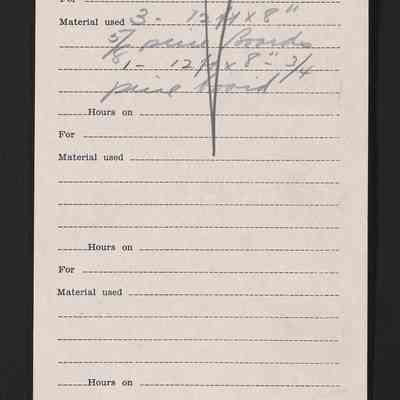 For
Material used 3 - 12 ft x 8"
5/8 pine boards
1 - 12 ft x 8" - 3/4
pine board
Hours on
For
Material used
Hours on
For
Material used
Hours on